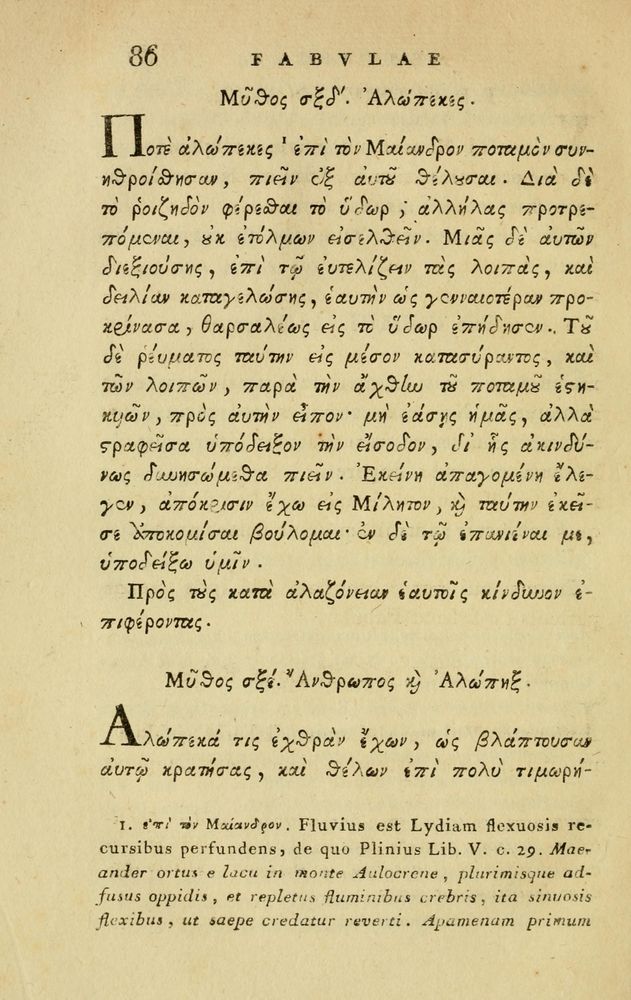 86 FABVLAE
Μῦθος σξδ'. Ἀλώπεκες.
Ποτὲ ἀλώπεκες ¹ ἐπὶ τὸν Μαίανδρον ποταμὸν συν-
ηθροίσθησαν, πιεῖν ἐξ αὐτοῦ θέλουσαι. Διὰ δὲ
τὸ ῥοιζηδὸν φέρεσθαι τὸ ὕδωρ, ἀλλήλας προτρε-
πόμεναι, οὐκ ἐτόλμων εἰσελθεῖν. Μιᾶς δὲ αὐτῶν
διεξιούσης, ἐπὶ τῷ εὐτελίζειν τὰς λοιπὰς, καὶ
δειλίαν καταγελώσης, ἑαυτὴν ὡς γενναιοτέραν προ-
κρίνασα, θαρσαλέως εἰς τὸ ὕδωρ ἐπήδησεν. Τοῦ
δὲ ῥεύματος ταύτην εἰς μέσον κατασύραντος, καὶ
τῶν λοιπῶν, παρὰ τὴν ὄχθην τοῦ ποταμοῦ ἑστη-
κυῶν, πρὸς αὐτὴν εἶπον· μὴ ἐάσῃς ἡμᾶς, ἀλλὰ
στραφεῖσα ὑπόδειξον τὴν εἴσοδον, δι' ἧς ἀκινδύ-
νως δυνησώμεθα πιεῖν. Ἐκείνη ἀπαγομένη ἔλε-
γεν, ἀπόκρισιν ἔχω εἰς Μίλητον, καὶ ταύτην ἐκεῖ-
σε ἀποκομίσαι βούλομαι· ἐν δὲ τῷ ἐπανιέναι με,
ὑποδείξω ὑμῖν.
Πρὸς τοὺς κατὰ ἀλαζόνειαν ἑαυτοῖς κίνδυνον ἐ-
πιφέροντας.
Μῦθος σξέ. Ἄνθρωπος καὶ Ἀλώπηξ.
Ἀλώπεκά τις ἐχθρὰν ἔχων, ὡς βλάπτουσαν
αὐτῷ κρατήσας, καὶ θέλων ἐπὶ πολὺ τιμωρή-
1. ἐπὶ τὸν Μαίανδρον. Fluvius est Lydiam flexuosis re-
cursibus perfundens, de quo Plinius Lib. V. c. 29. Mae-
ander ortus e lacu in monte Aulocrene, plurimisque ad-
fusus oppidis, et repletus fluminibus crebris, ita sinuosis
flexibus, ut saepe credatur reverti. Apamenam primum